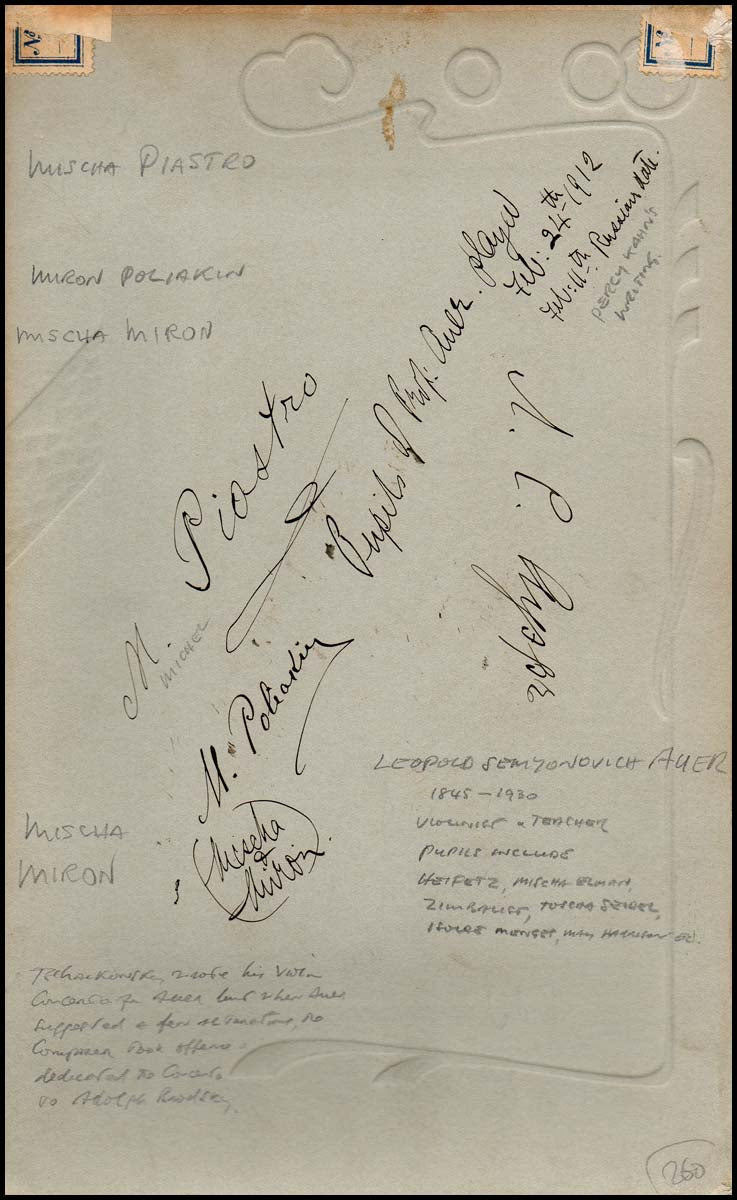 No
No
MISCHA PIASTRO
MIRON POLIAKIN
MISCHA MIRON
Feb: 24th 1912
Feb: 11th Russian date.
PERCY KAHN'S
WRITING.
Pupils of Prof: Auer. played
M. Piastro
MICHEL
M. Poliakin
Mischa
&
Miron.
MISCHA
MIRON
LEOPOLD SEMYONOVICH AUER
1845 - 1930
VIOLINIST & TEACHER
PUPILS INCLUDE
HEIFETZ, MISCHA ELMAN,
ZIMBALIST, TOSCHA SEIDEL,
ISOLDE MENGES, MAY HARRISON Etc.
Tschaikovsky wrote his Violin
Concerto for Auer but when Auer
suggested a few alterations, the
Composer took offence &
dedicated the Concerto
to Adolph Brodsky.
260